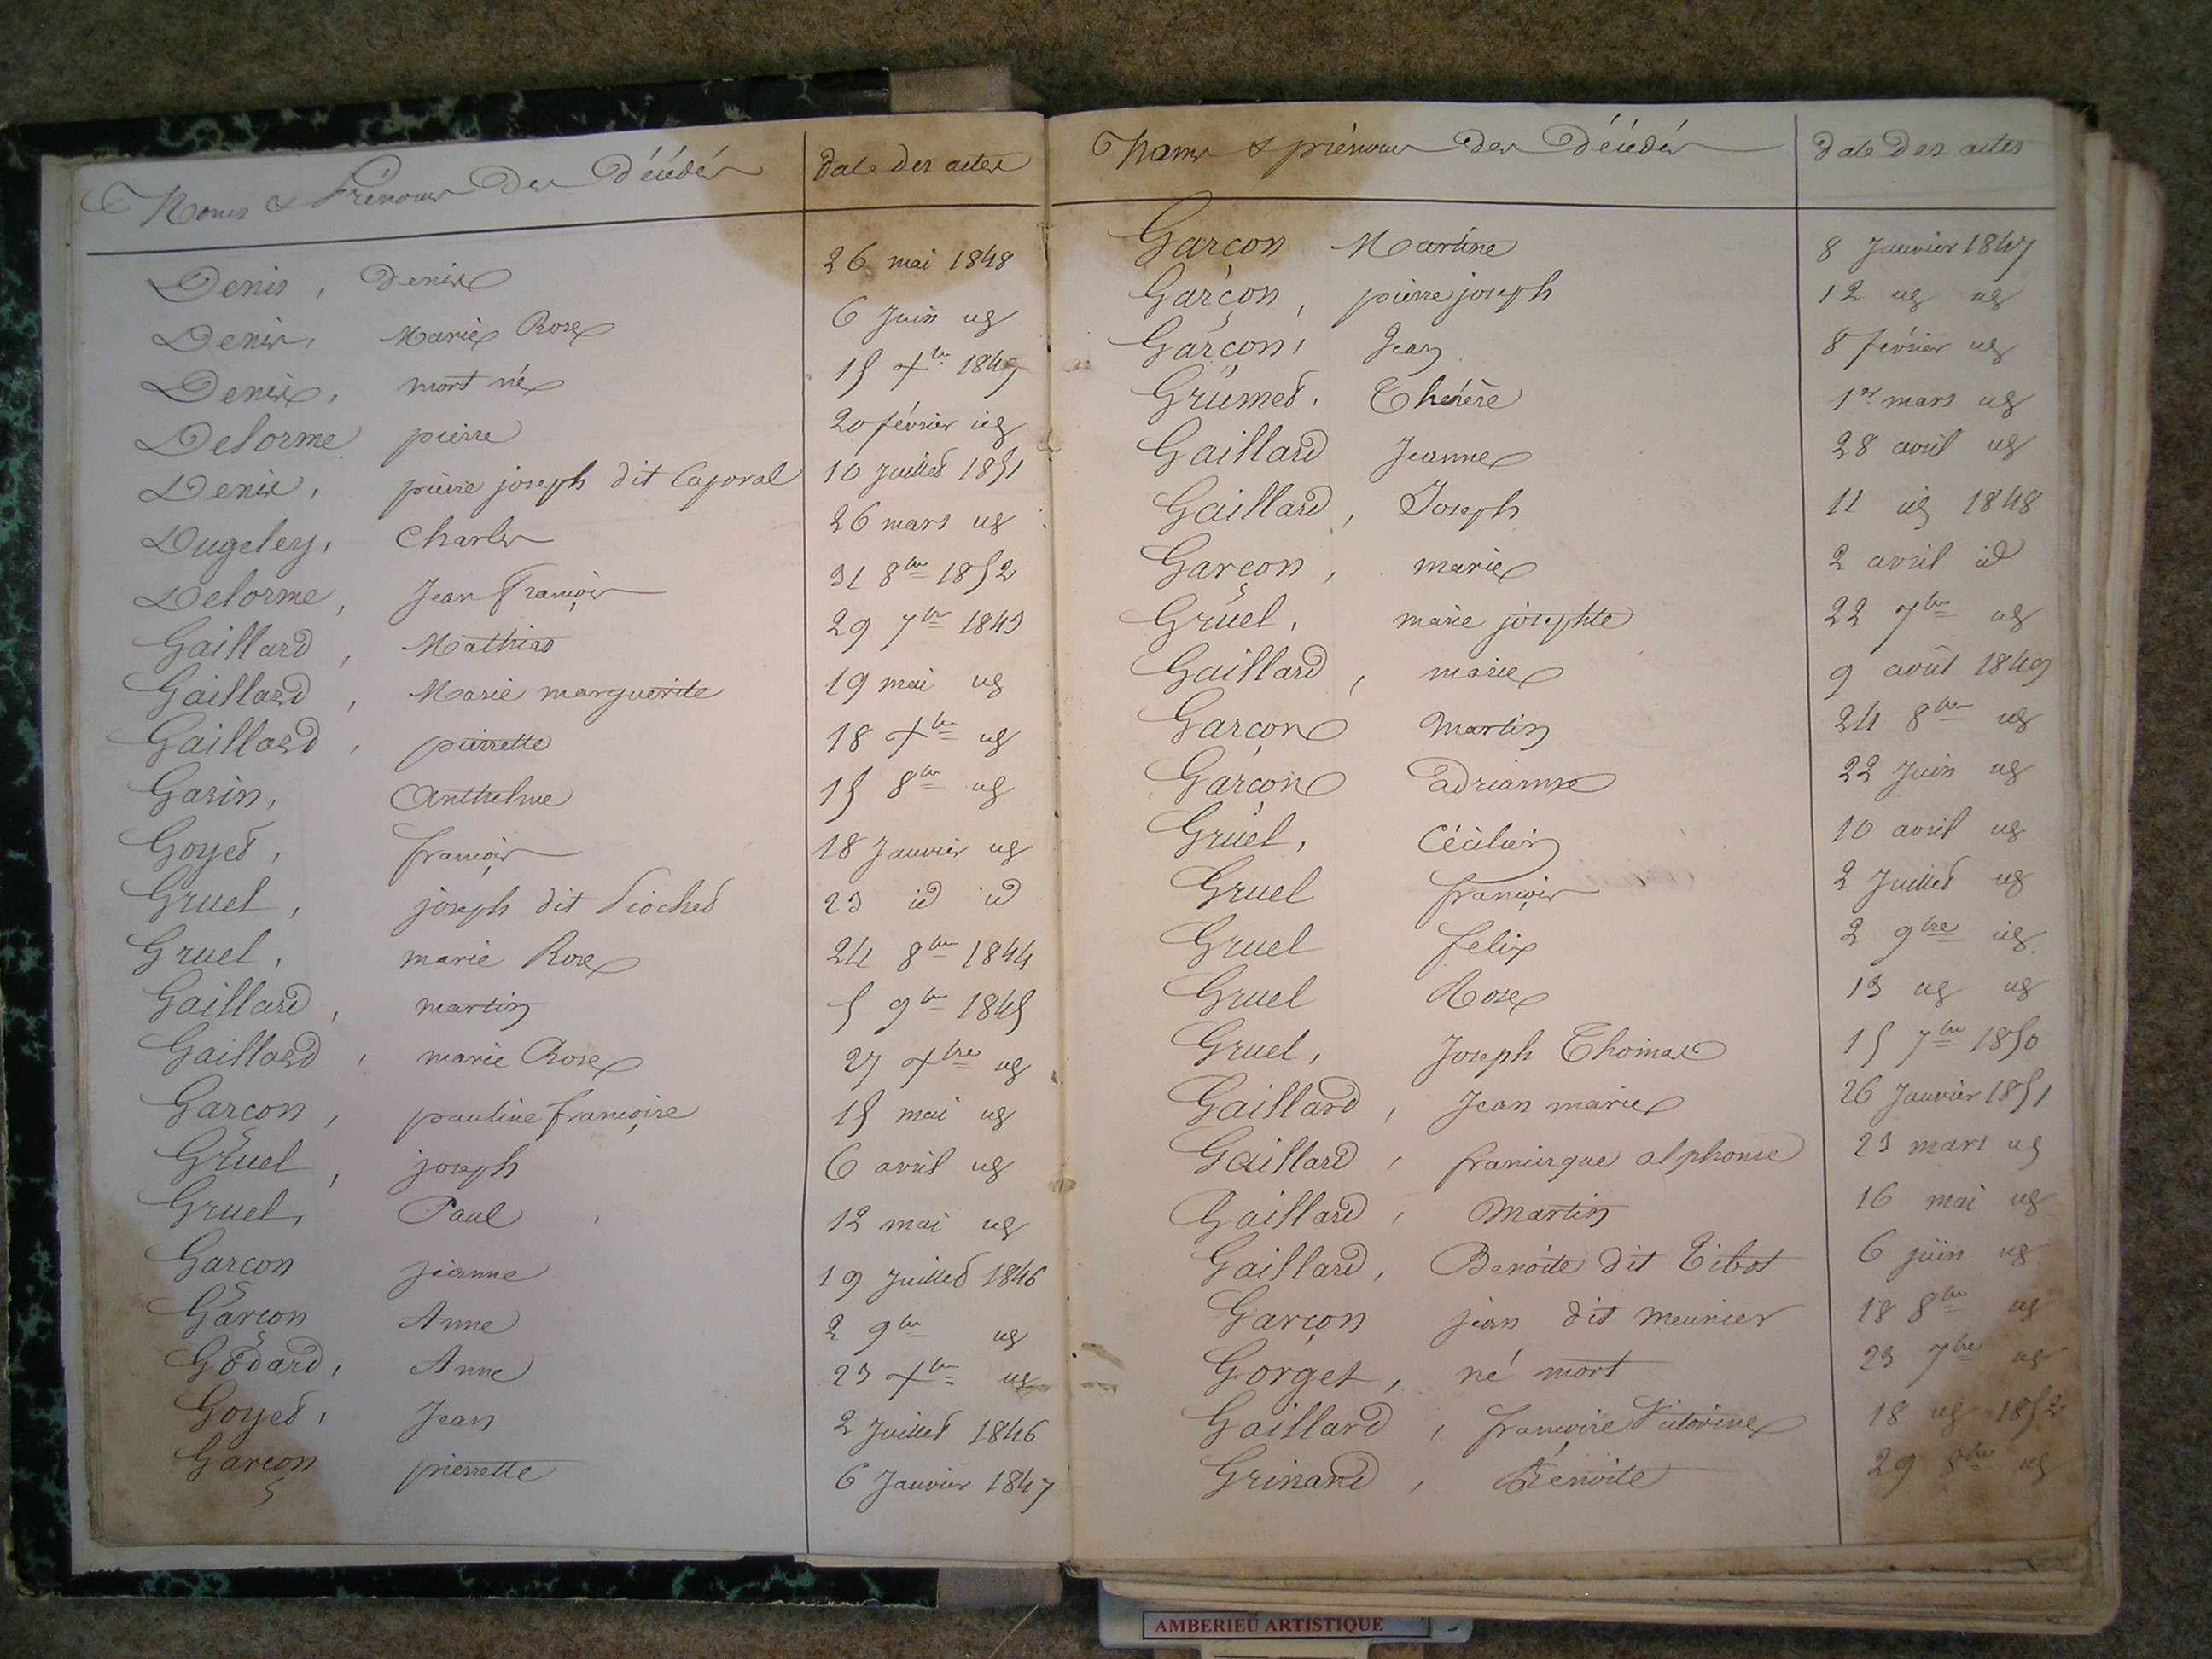 Noms & Prénoms des Décédés Date des actes
Denis, Denis 26 mai 1848
Denis, Marie Rose 6 Juin id
Denis, mort né 15 Xbre 1849
Delorme pierre 20 février id
Denis, pierre joseph dit Caporal 10 Juillet 1851
Dugeley, Charles 26 mars id
Delorme, Jean François 31 8bre 1852
Gaillard, Mathias 29 7bre 1843
Gaillard, Marie marguerite 19 mai id
Gaillard, pierrette 18 Xbre id
Garin, Anthelme 15 8bre id
Goyet, françois 18 Janvier id
Gruel, joseph dit Piochet 23 id id
Gruel, marie Rose 24 8bre 1844
Gaillard, martin 5 9bre 1845
Gaillard, marie Rose 27 Xbre id
Garçon, pauline françoise 15 mai id
Gruel, joseph 6 avril id
Gruel, Paul 12 mai id
Garçon jeanne 19 Juillet 1846
Garçon Anne 2 9bre id
Godard, Anne 23 Xbre id
Goyet, Jean 2 Juillet 1846
Garçon pierrette 6 Janvier 1847
Noms & prénoms des Décédés Date des actes
Garçon Martine 8 Janvier 1847
Garçon, pierre joseph 12 id id
Garçon, Jean 8 février id
Grumet, Thérèse 1er mars id
Gaillard Jeanne 28 avril id
Gaillard, Joseph 11 id 1848
Garçon, marie 2 avril id
Gruel, marie josephte 22 7bre id
Gaillard, marie 9 août 1849
Garçon Martin 24 8bre id
Garçon adrianne 22 Juin id
Gruel, Cécilien 10 avril id
Gruel françois 2 Juillet id
Gruel felix 2 9bre id
Gruel Rose 13 id id
Gruel, Joseph Thomas 15 7bre 1850
Gaillard, Jean marie 26 Janvier 1851
Gaillard, francisque alphonse 23 mars id
Gaillard, Martin 16 mai id
Gaillard, Benoite dit Tibot 6 juin id
Garçon jean dit meunier 18 8bre id
Gorget, né mort 23 7bre id
Gaillard, françoise Victorine 18 id 1852
Grinand, Benoite 29 8bre id
AMBERIEU ARTISTIQUE